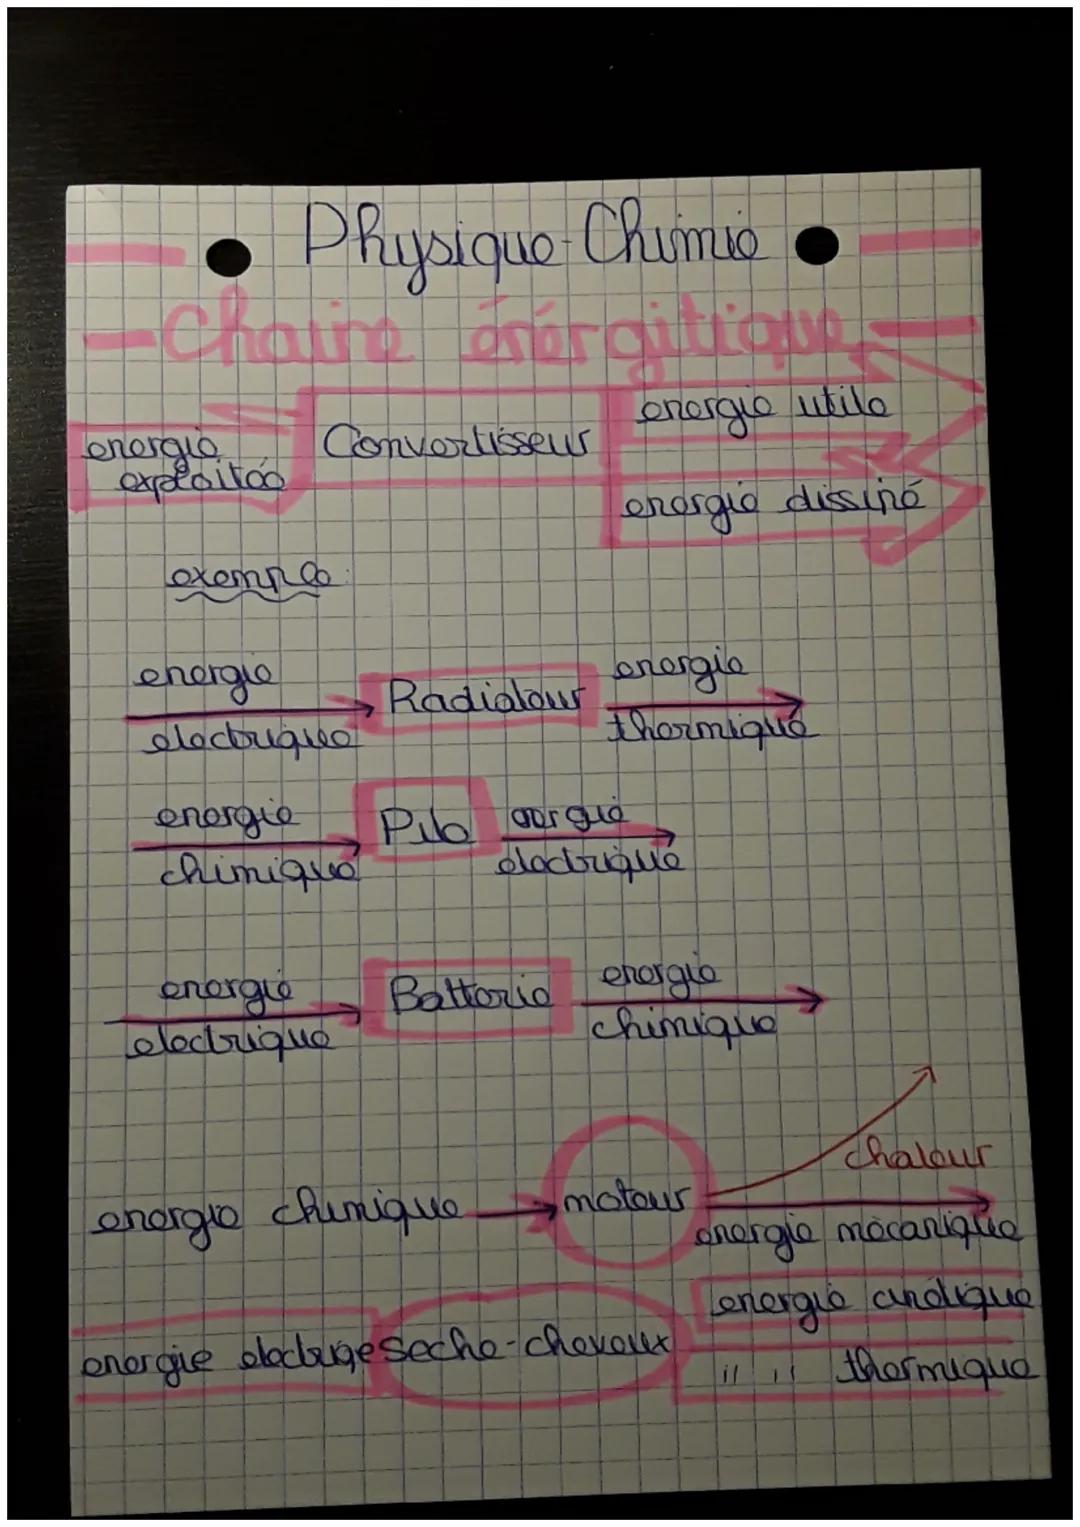 Physique-Chimie
Chaine énérgitique
energie
exploitée
Convertisseur
energie utile
energie dissipé
exemple:
energie
electrique
Radiateur
energie
thermique
energie
chimique
Pile
energie
electrique
energie
electrique
Batterie
energie
chimique
chaleur
energie chimique
moteur
energie mécanique
energie electrique
Seche-cheveux
energie cinétique
" " thermique